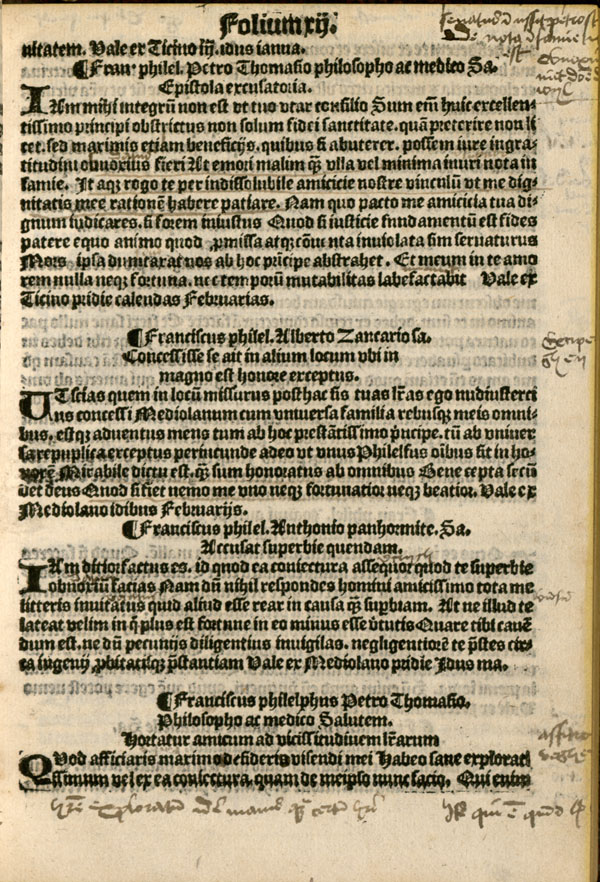 Folium xij.
nitatem. Vale ex Ticino iiij. idus ianua.
¶Fran. philel. Petro Thomasio philosopho ac medico Sa.
Epistola excusatoria.
IAm mihi integrū non est vt tuo vtar consilio Sum em̄ huic excellen⸗
tissimo principi obstrictus non solum fidei sanctitate. quā preterire non li
cet. sed maximis etiam beneficijs. quibus si abuterer. possem iure ingra⸗
titudini obnoxius fieri At emori malim qᷓ vlla vel minima inuri nota in
famie. Itaqꝫ rogo te per indissolubile amicicie nostre vinculū vt me dig⸗
nitatis mee rationē habere patiare. Nam quo pacto me amicicia tua di
gnum iudicares. si forem iniustus Quod si iusticie fundamentū est fides
patere equo animo quod ꝓmissa atqꝫ cōuenta inuiolata sim seruaturus
Mors ipsa dumtaxat nos ab hoc prīcipe abstrahet. Et meum in te amo
rem nulla neqꝫ fortuna. nec temporū mutabilitas labefactabit Vale ex
Ticino pridie calendas Februarias.
¶Franciscus philel. Alberto Zancario sa.
Concessisse se ait in alium locum vbi in
magno est honore exceptus.
UT scias quem in locū missurus posthac sis tuas lr̄as ego nudiusterci
us concessi Mediolanum cum vniuersa familia rebusqꝫ meis omni⸗
bus. estqꝫ aduentus meus tum ab hoc prestātissimo pͥncipe. tū ab vniuer
sa republica exceptus periucunde adeo vt vnus Philelfus oībus sit in ho⸗
nore. Mirabile dictu est. qᷓ sum honoratus ab omnibus Bene cepta secū
det deus Quod si fiet nemo me vno neqꝫ fortunatior neqꝫ beatior. Vale ex
Mediolano idibus Februarijs.
¶Franciscus philel. Anthonio panhormite. Sa.
Accusat superbie quendam.
IAm ditior factus es. id quod ea coniectura assequor quod te superbie
obnoxiū facias Nam dū nihil respondes homini amicissimo tota me
litteris inuitatus quid aliud esse rear in causa qᷓ supbiam. At ne illud te
lateat velim in q̄ plus est fortune in eo minus esse v̓tutis Quare tibi cauē
dum est. ne dū pecunijs diligentius inuigilas. negligentiorē te p̄stes cir⸗
ca ingenij ꝓbitatisqꝫ p̄stantiam Vale ex Mediolano pridie Idus ma.
¶Franciscus philelphus Petro Thomasio.
Philosopho ac medico Salutem.
Hortatur amicum ad vicissitudinem lr̄arum
QVod afficiaris maximo desiderio visendi mei Habeo sane explorati
ssimum vel ex ea coniectura. quam de meipso nunc facio. Qui enim